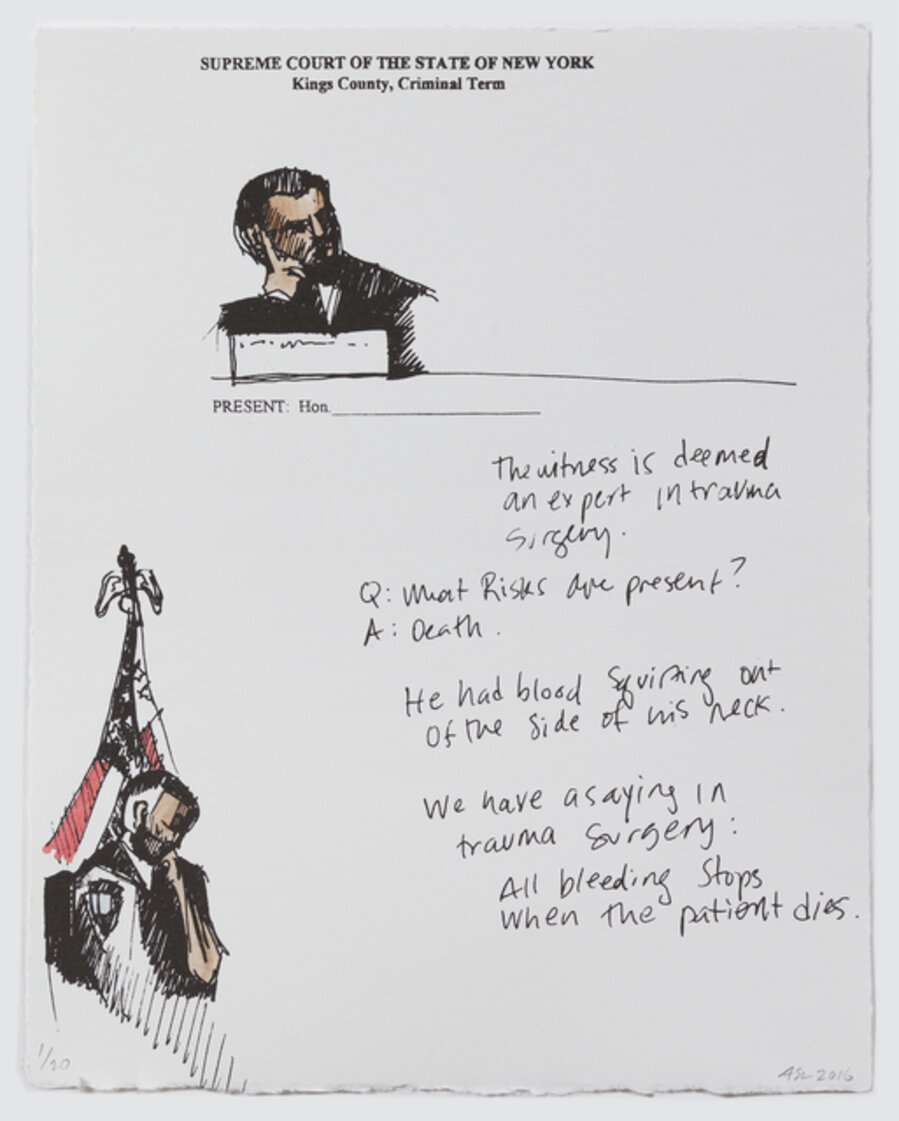 SUPREME COURT OF THE STATE OF NEW YORK
Kings County, Criminal Term
PRESENT: Hon.
The witness is deemed
an expert in trauma
surgery.
Q: What Risks are present?
A: Death.
He had blood squirting out
Of the side of his neck.
We have a saying in
trauma surgery:
All bleeding stops
when the patient dies.
1/20
ASL 2016